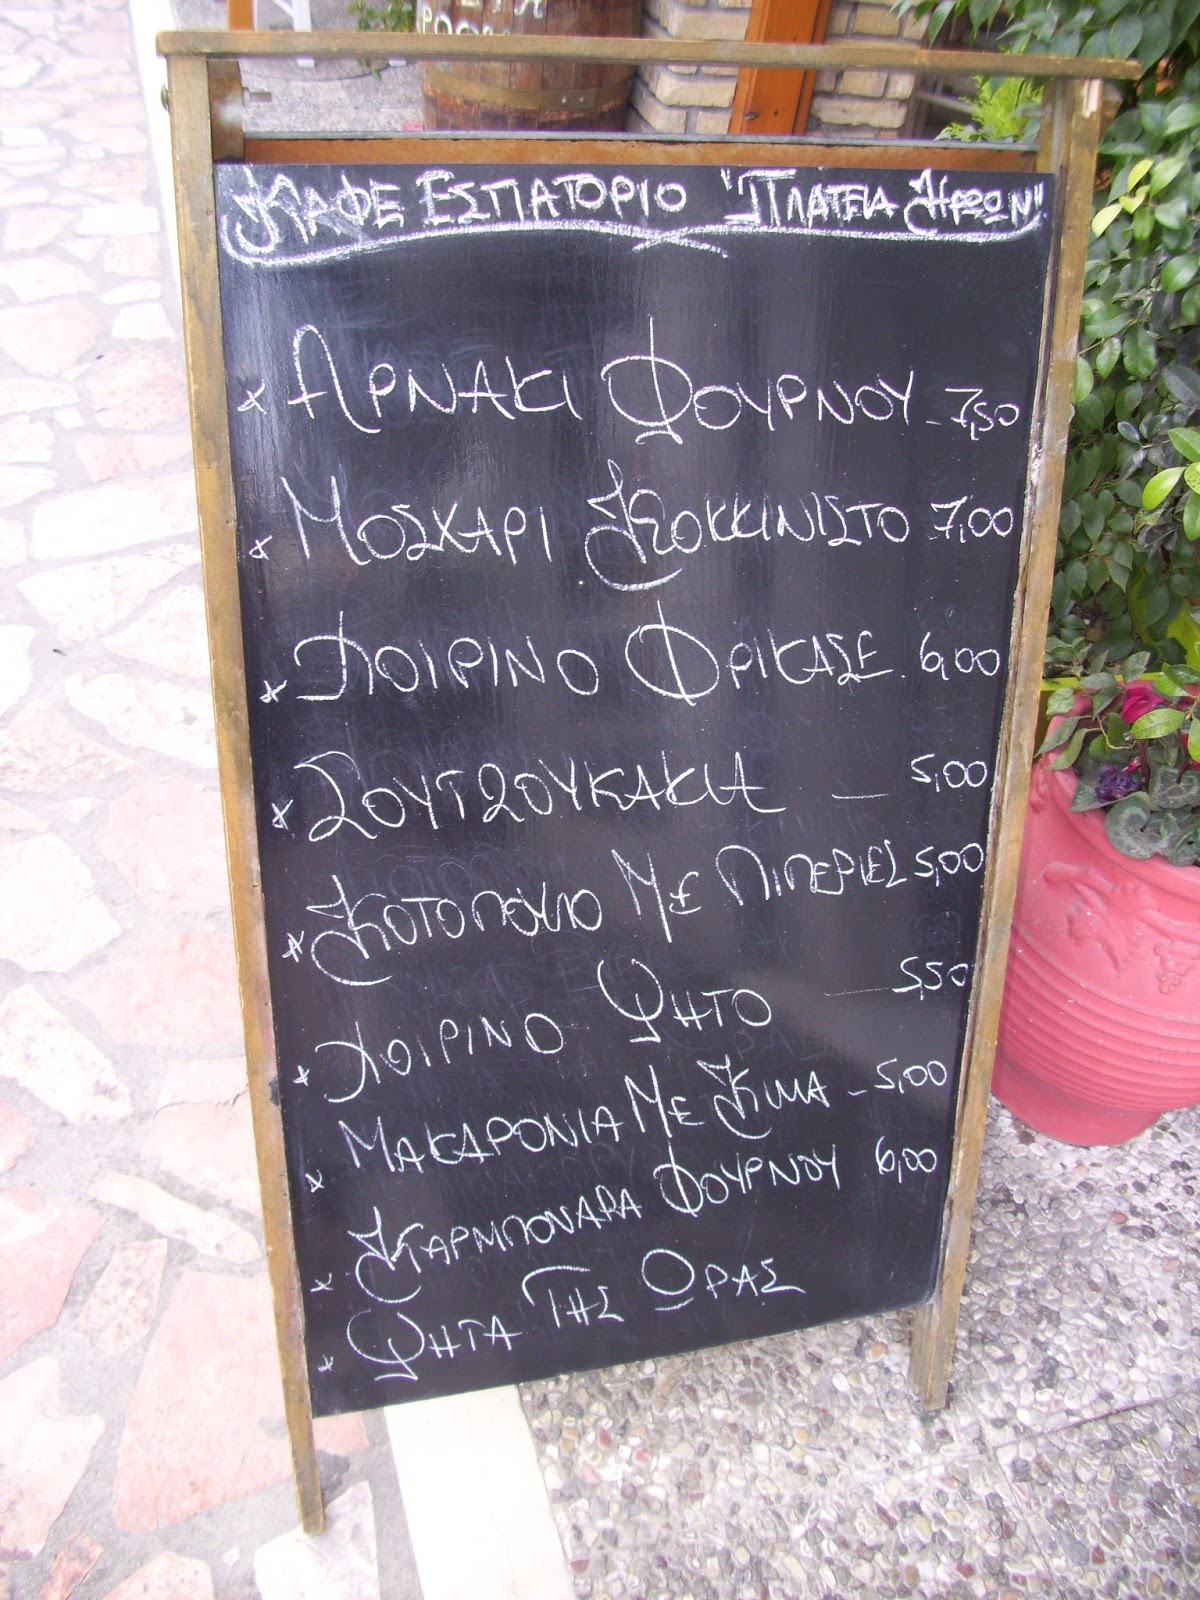 ΚΑΦΕ ΕΣΠΑΤΟΡΙΟ "ΠΛΑΤΕΙΑ ΗΡΩΩΝ"
* ΑΡΝΑΚΙ ΦΟΥΡΝΟΥ - 7,50
* ΜΟΣΧΑΡΙ ΚΟΚΚΙΝΙΣΤΟ 7,00
* ΧΟΙΡΙΝΟ ΦΡΙΚΑΣΕ. 6,00
* ΣΟΥΤΖΟΥΚΑΚΙΑ — 5,00
* ΚΟΤΟΠΟΥΛΟ ΜΕ ΠΙΠΕΡΙΕΣ 5,00
* ΧΟΙΡΙΝΟ ΨΗΤΟ — 5,50
* ΜΑΚΑΡΟΝΙΑ ΜΕ ΚΙΜΑ - 5,00
* ΚΑΡΜΠΟΝΑΡΑ ΦΟΥΡΝΟΥ 6,00
* ΨΗΤΑ ΤΗΣ ΩΡΑΣ